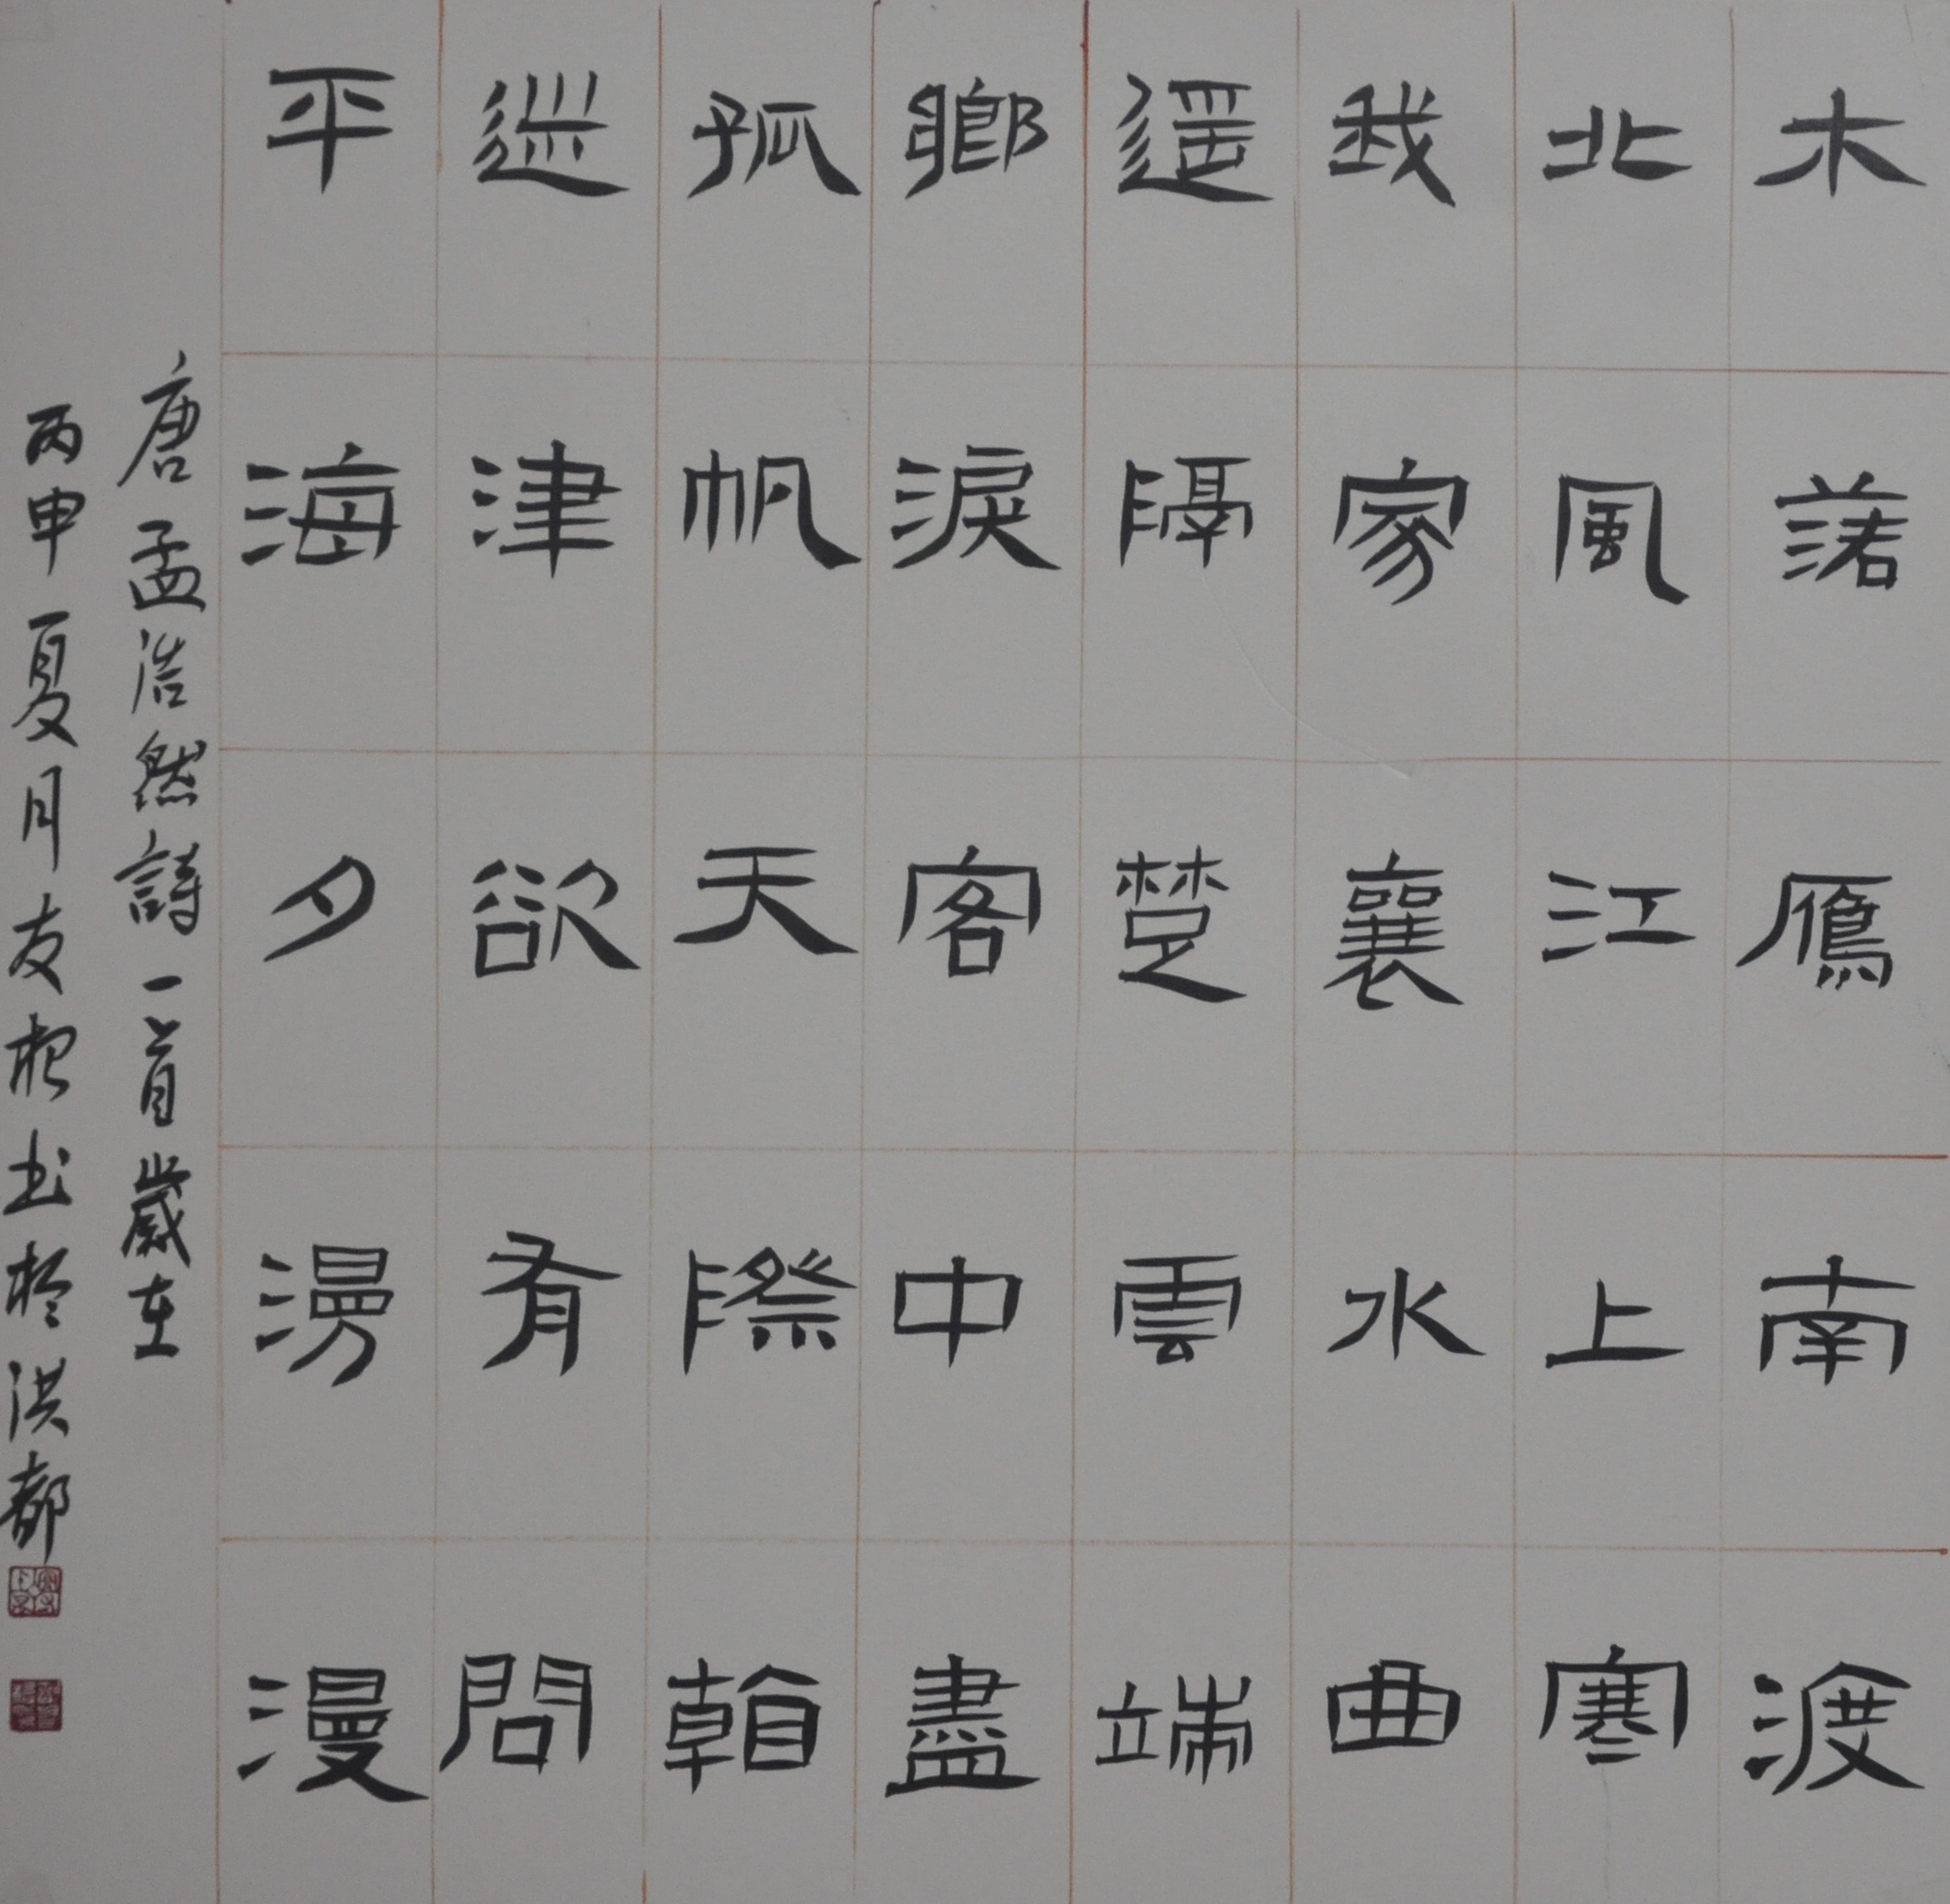 木落鴈南渡
北風江上寒
我家襄水曲
遙隔楚雲端
鄉淚客中盡
孤帆天際看
迷津欲有問
平海夕漫漫
唐孟浩然詩一首歲在
丙申夏月友根书於洪都